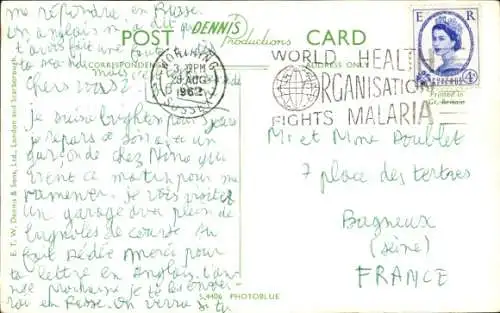 me répondre, en Russe.
Un anglais m'a dit que
t'avais fait une
POST DENNIS Productions CARD
CORRESPONDENCE
ADDRESS ONLY
WORTHING
SUSSEX
PM
29 AUG
1962
WORLD HEALTH
ORGANISATION
FIGHTS MALARIA
E R
POSTAGE
4D
Printed in
Gt. Britain
Chers vous 2
je suis à Brighton pour
je repars ce soir avec un
garçon de chez Nina qui
vient ce matin pour me
ramener. Je vais visiter
un garage avec plein de
bagnoles de course. Au
fait Dédée merci pour
ta lettre en Anglais. L'an-
née prochaine je te
en Russe. On verra si tu
Mr et Mme Doublet
7 place des tertres
Bagneux
(Seine)
FRANCE
E. T. W. Dennis & Sons, Ltd., London and Scarborough.
S.4406 PHOTOBLUE